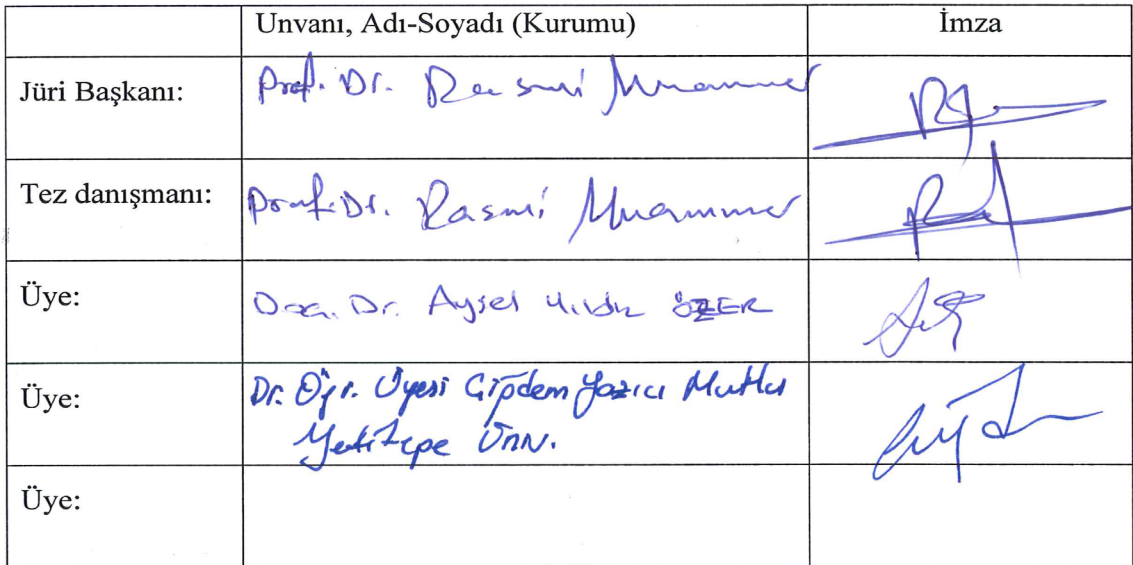 Unvanı, Adı-Soyadı (Kurumu) İmza
Jüri Başkanı: Prof. Dr. Rasmi Muammer
Tez danışmanı: Prof. Dr. Rasmi Muammer
Üye: Doç. Dr. Aysel Yıldız ÖZER
Üye: Dr. Öğr. Üyesi Çiğdem Yazıcı Mutlu
Yeditepe Ünv.
Üye: